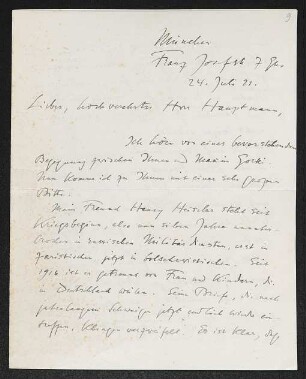 9
München
Franz Josefstr 7 Gh.
24. Juli 21.
Lieber, hochverehrter Herr Hauptmann,
Ich höre von einer bevorstehenden
Begegnung zwischen Ihnen und Maxim Gorki
Nun komme ich zu Ihnen mit einer sehr großen
Bitte.
Mein Freund Henry steht seit
Kriegsbeginn, also nun sieben Jahre ununter-
brochen in russischen Militärdiensten, erst in
zaristischen jetzt in bolschewistischen. Seit
1914 ist er getrennt von Frau und Kindern, die
in Deutschland weilen. Seine Briefe, die nach
jahrelangem Schweigen jetzt endlich wieder ein-
treffen, klingen verzweifelt. Es ist klar, daß